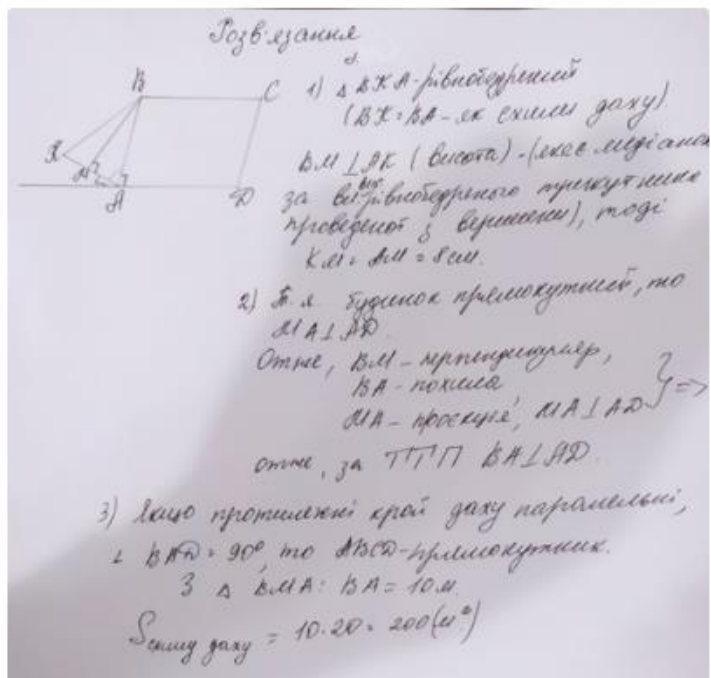 Розв'язання
B
C
K
M
A
D
1) △ BKA - рівнобедрений
(BK = BA - як схили даху)
BM ⊥ AK (висота) - (яка є медіаною
за вл. рівнобедреного трикутника
проведеної з вершини), тоді
KM = AM = 8 см.
2) Т.я. будинок прямокутний, то
MA ⊥ AD.
Отже, BM - перпендикуляр,
BA - похила
MA - проекція, MA ⊥ AD } =>
отже, за ТТП BA ⊥ AD.
3) Якщо протилежні краї даху паралельні,
∠ BAD = 90°, то ABCD - прямокутник.
З △ BMA: BA = 10 м.
S схилу даху = 10 · 20 = 200 (м²)